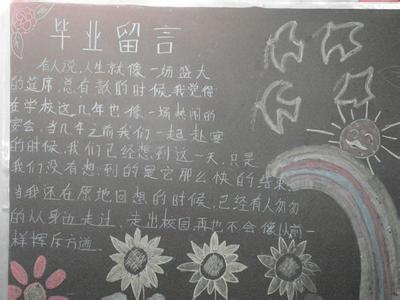 毕业留言
有人说，人生就像一场盛大
的筵席，总有散的时候，我觉得
在学校这几年也像一场热闹的
宴会，当几年之前我们一起赴宴
的时候，我们已经想到这一天，只是
我们没有想到的是它那么快的结束，
当我还在原地回想的时候，已经有人匆匆
的从身边走过，走出校园，再也不会像以前一
样挥斥方遒